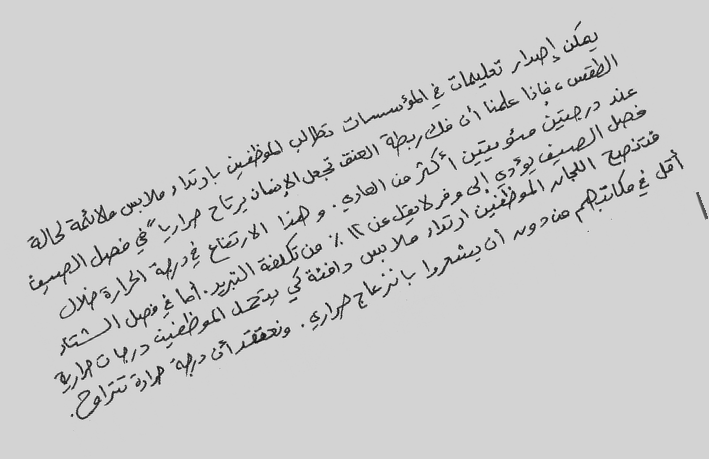 يمكن إصدار تعليمات في المؤسسات تطالب الموظفين بارتداء ملابس ملائمة لحالة
الطقس، فإذا علمنا أن فك ربطة العنق تجعل الإنسان يرتاح حرارياً في فصل الصيف
عند درجتين مئويتين أكثر من العادي. وهذا الارتفاع في درجة الحرارة خلال
فصل الصيف يؤدي إلى وفر لا يقل عن ١٢٪ من تكلفة التبريد. أما في فصل الشتاء
فتنصح اللجان الموظفين ارتداء ملابس دافئة كي يتحمل الموظفين درجات حرارة
أقل في مكاتبهم من دون أن يشعروا بانزعاج حراري. ونعتقد أن درجة حرارة تتراوح.